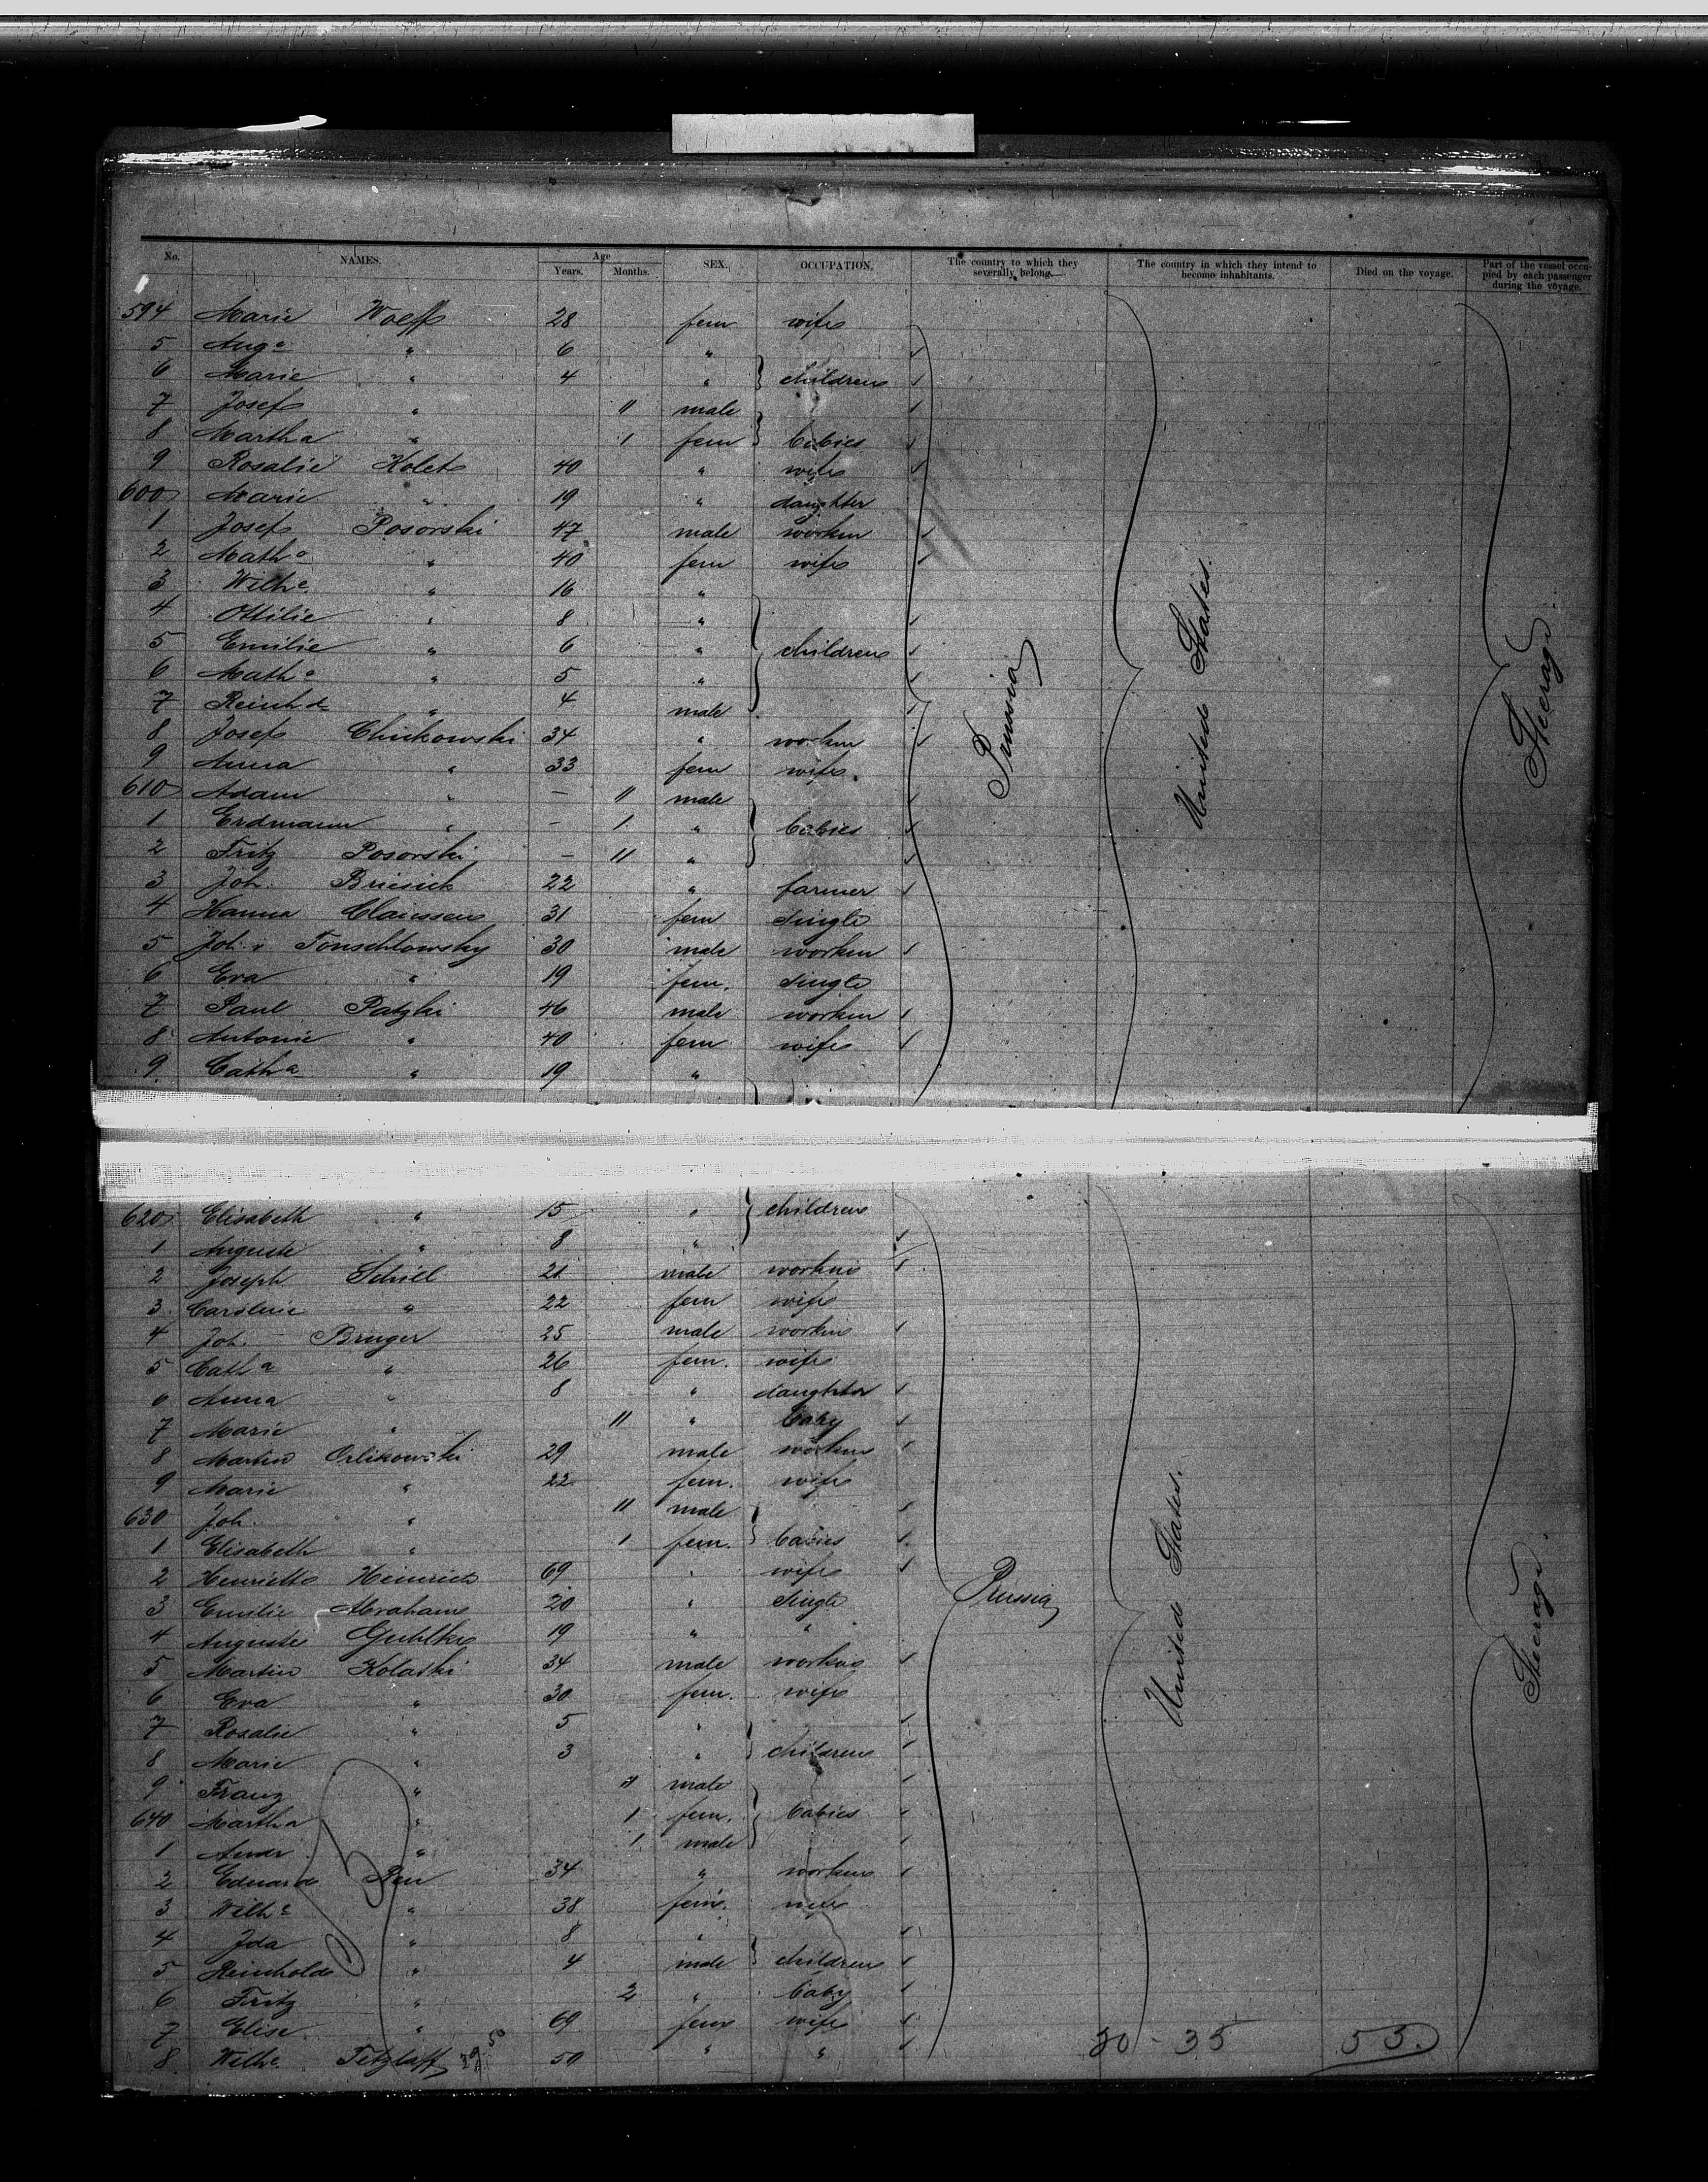 No. NAMES. Age Years. Months. SEX. OCCUPATION. The country to which they severally belong. The country in which they intend to become inhabitants. Died on the voyage. Part of the vessel occupied by each passenger during the voyage.
594 Marie Wolff 28 fem wife
5 Aug.e " 6 "
6 Marie " 4 " children
7 Josef " 11 male
8 Martha " 1 fem babies
9 Rosalie Kolets 40 " wife
600 Marie " 19 " daughter
1 Josef Posorski 47 male workm
2 Math.e " 40 fem wife
3 Wilh.e " 16 "
4 Ottilie " 8 "
5 Emilie " 6 " children
6 Math.e " 5 "
7 Reinhd. " 4 male
8 Josef Chickowski 34 " workm
9 Anna " 33 fem wife
610 Adam " — 11 male
1 Erdmann " — 1 " babies
2 Fritz Posorski — 11 "
3 Joh. Briesick 22 " farmer
4 Hanna Claussen 31 fem single
5 Joh. v. Tonschlowsky 30 male workm
6 Eva " 19 fem. single
7 Paul Patzki 46 male workm
8 Antonie " 40 fem wife
9 Cath.a " 19 "
Prussia
United States.
Steerage.
620 Elisabeth " 15 " children
1 Auguste " 8 "
2 Joseph Schiel 21 male workm
3 Caroline " 22 fem wife
4 Joh. Bruger 25 male workm
5 Cath.a " 26 fem. wife
6 Anna " 8 " daughter
7 Marie " 11 " baby
8 Martin Orlikowski 29 male workm
9 Marie " 22 fem. wife
630 Joh. " 11 male
1 Elisabeth " 1 fem. babies
2 Henriette Heinrich 69 " wife
3 Emilie Abraham 20 " single
4 Auguste Guhlke 19 " "
5 Martin Kolatki 34 male workm
6 Eva " 30 fem. wife
7 Rosalie " 5 "
8 Marie " 3 " children
9 Franz " male
640 Martha " 1 fem. babies
1 Andr. " 1 male
2 Eduard 34 " workm
3 Wilh.e " 38 fem. wife
4 Ida " 8 "
5 Reinhold " 4 male children
6 Fritz " 2 " baby
7 Elise " 69 fem wife
8 Wilh.e Tetzlaff 50 " "
Prussia
United States.
Steerage.
20 - 35 55.